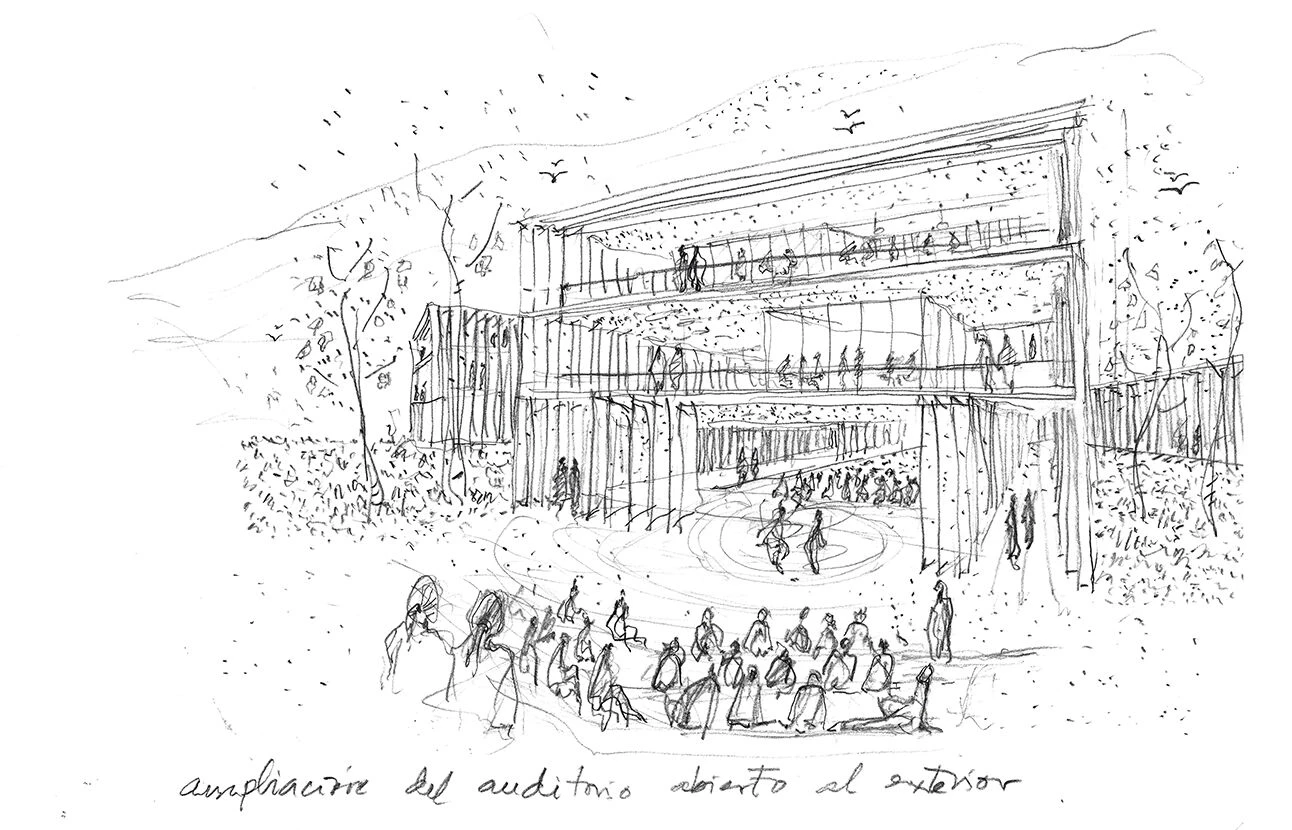 ampliación del auditorio abierto al exterior